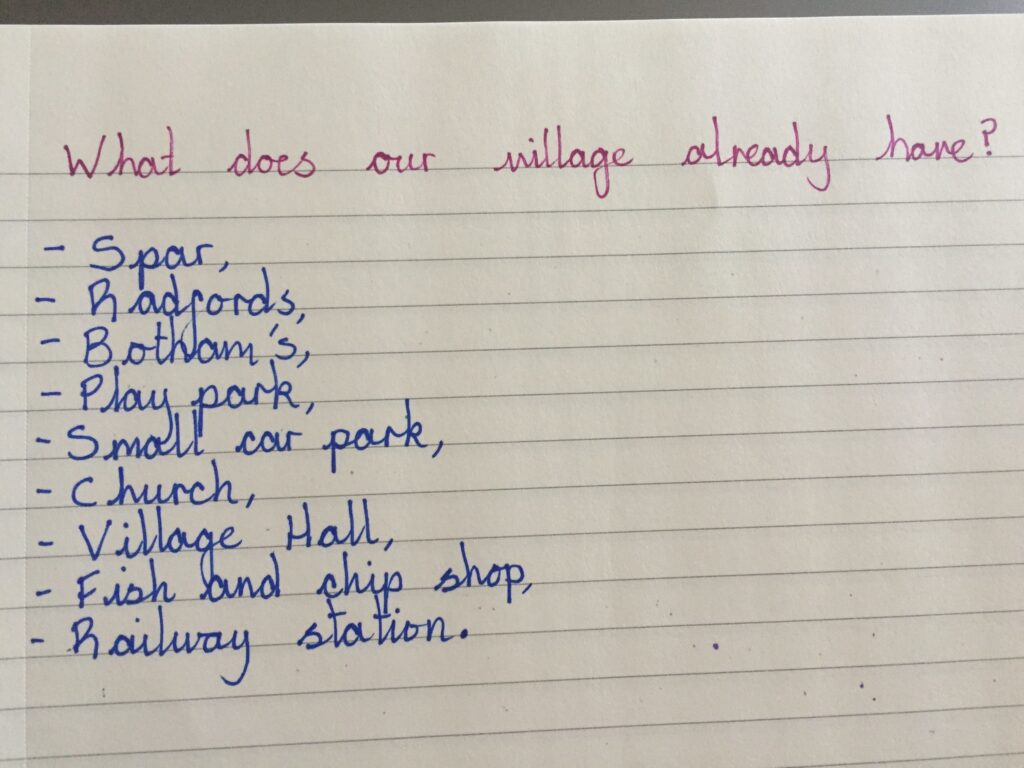 What does our village already have?
- Spar,
- Radfords,
- Botham's,
- Play park,
- Small car park,
- Church,
- Village Hall,
- Fish and chip shop,
- Railway station.